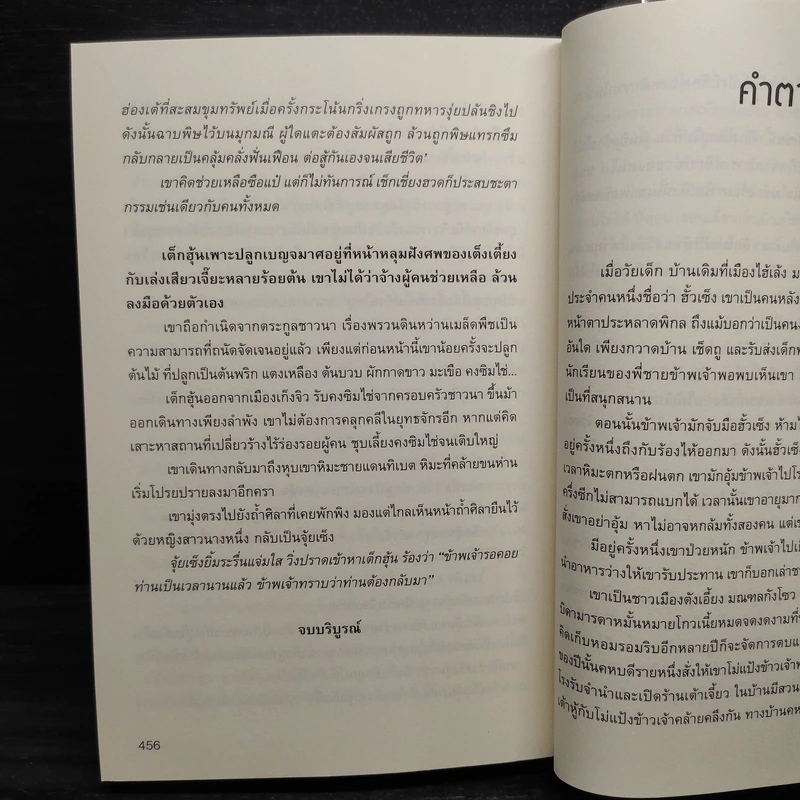 ฮ่องเต้ที่สะสมขุมทรัพย์เมื่อครั้งกระโน้นกริ่งเกรงถูกทหารงุ่ยปล้นชิงไป
ดังนั้นฉาบพิษไว้บนมุกมณี ผู้ใดแตะต้องสัมผัสถูก ล้วนถูกพิษแทรกซึม
กลับกลายเป็นคลุ้มคลั่งฟั่นเฟือน ต่อสู้กันเองจนเสียชีวิต’
เขาคิดช่วยเหลือซือแป๋ แต่ก็ไม่ทันการณ์ เช็กเชี่ยงฮวดก็ประสบชะตา
กรรมเช่นเดียวกับคนทั้งหมด
เต็กฮุ้นเพาะปลูกเบญจมาศอยู่ที่หน้าหลุมฝังศพของเต็งเตี้ยง
กับเล่งเสียวเจี๊ยะหลายร้อยต้น เขาไม่ได้ว่าจ้างผู้คนช่วยเหลือ ล้วน
ลงมือด้วยตัวเอง
เขาถือกำเนิดจากตระกูลชาวนา เรื่องพรวนดินหว่านเมล็ดพืชเป็น
ความสามารถที่ถนัดจัดเจนอยู่แล้ว เพียงแต่ก่อนหน้านี้เขาน้อยครั้งจะปลูก
ต้นไม้ ที่ปลูกเป็นต้นพริก แตงเหลือง ต้นบวบ ผักกาดขาว มะเขือ คงซิมไช่...
เต็กฮุ้นออกจากเมืองเก็งจิว รับคงซิมไช่จากครอบครัวชาวนา ขึ้นม้า
ออกเดินทางเพียงลำพัง เขาไม่ต้องการคลุกคลีในยุทธจักรอีก หากแต่คิด
เสาะหาสถานที่เปลี่ยวร้างไร้ร่องรอยผู้คน ชุบเลี้ยงคงซิมไช่จนเติบใหญ่
เขาเดินทางกลับมาถึงหุบเขาหิมะชายแดนทิเบต หิมะที่คล้ายขนห่าน
เริ่มโปรยปรายลงมาอีกครา
เขามุ่งตรงไปยังถ้ำศิลาที่เคยพักพิง มองแต่ไกลเห็นหน้าถ้ำศิลายืนไว้
ด้วยหญิงสาวนางหนึ่ง กลับเป็นจุ้ยเซ็ง
จุ้ยเซ็งยิ้มระรื่นแจ่มใส วิ่งปราดเข้าหาเต็กฮุ้น ร้องว่า “ข้าพเจ้ารอคอย
ท่านเป็นเวลานานแล้ว ข้าพเจ้าทราบว่าท่านต้องกลับมา”
จบบริบูรณ์
456
คำตา
เมื่อวัยเด็ก บ้านเดิมที่เมืองไฮ้เล้ง
ประจำคนหนึ่งชื่อว่า ฮั้วเซ็ง เขาเป็นคนหลัง
หน้าตาประหลาดพิกล ถึงแม้บอกว่าเป็นคน
อันใด เพียงกวาดบ้าน เช็ดถู และรับส่งเด็ก
นักเรียนของพี่ชายข้าพเจ้าพอพบเห็นเขา
เป็นที่สนุกสนาน
ตอนนั้นข้าพเจ้ามักจับมือฮั้วเซ็ง ห้าม
อยู่ครั้งหนึ่งถึงกับร้องไห้ออกมา ดังนั้นฮั้วเซ็ง
เวลาหิมะตกหรือฝนตก เขามักอุ้มข้าพเจ้าไป
ครึ่งซีกไม่สามารถแบกได้ เวลานั้นเขาอายุมาก
สั่งเขาอย่าอุ้ม หาไม่อาจหกล้มทั้งสองคน แต่
มีอยู่ครั้งหนึ่งเขาป่วยหนัก ข้าพเจ้าไป
นำอาหารว่างให้เขารับประทาน เขาก็บอกเล่า
เขาเป็นชาวเมืองตังเอี้ยง มณฑลกังโซว
บิดามารดาหมั้นหมายโกวเนี้ยหมดจดงดงามที่
คิดเก็บหอมรอมริบอีกหลายปีก็จะจัดการตบแต่ง
ของปีนั้นคหบดีรายหนึ่งสั่งให้เขาโม่แป้งข้าวเจ้า
โรงรับจำนำและเปิดร้านเต้าเจี้ยว ในบ้านมีสวน
เต้าหู้กับโม่แป้งข้าวเจ้าคล้ายคลึงกัน ทางบ้าน